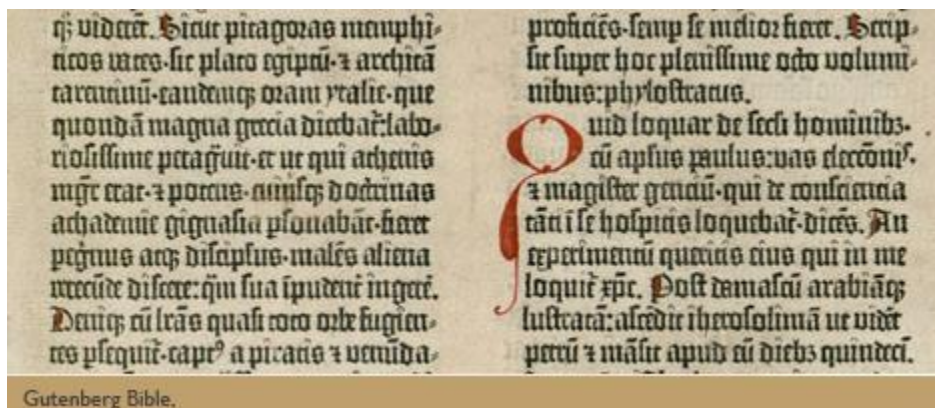 q; videret. Sicut pitagoras memphi-
ticos vates. sic plato egiptū. ⁊ architā
tarentinū. eandemq; oram ytalie. que
quondā magna grecia dicebat̄: labo-
riosissime peragᷓuit. et ut qui athenis
mgr̄ erat. ⁊ potens. cuiusq; doctrinas
achademie gignasia ꝑsonabāt. fieret
peg̊rinus atq; discipl̄us. malēs aliena
verecūde discere: q̄m sua īpudent̄ ingere̅.
Deniq; cū lr̄as quasi toto orbe fugien-
tes ꝑsequit̄. captꝰ a piratis ⁊ venūda-
proficiēs. semp̄ se melior fieret. Scrip-
sit super hoc plenissime octo volumi-
nibus: phylostratus.
Quid loquar de secli hominibꝫ.
cū apl̄us paulus: vas elecc̄onis.
⁊ magister genciū. qui de consciencia
tāti ī se hospitis loquebat̄. dicēs. An
experimentū queritis eius qui in me
loquit̄ xp̄c. Post damascū arabiāq;
lustratā: ascēdit iherosolimā ut vidēt
petrū ⁊ māsit apud eū diebꝫ quindeci.
Gutenberg Bible,